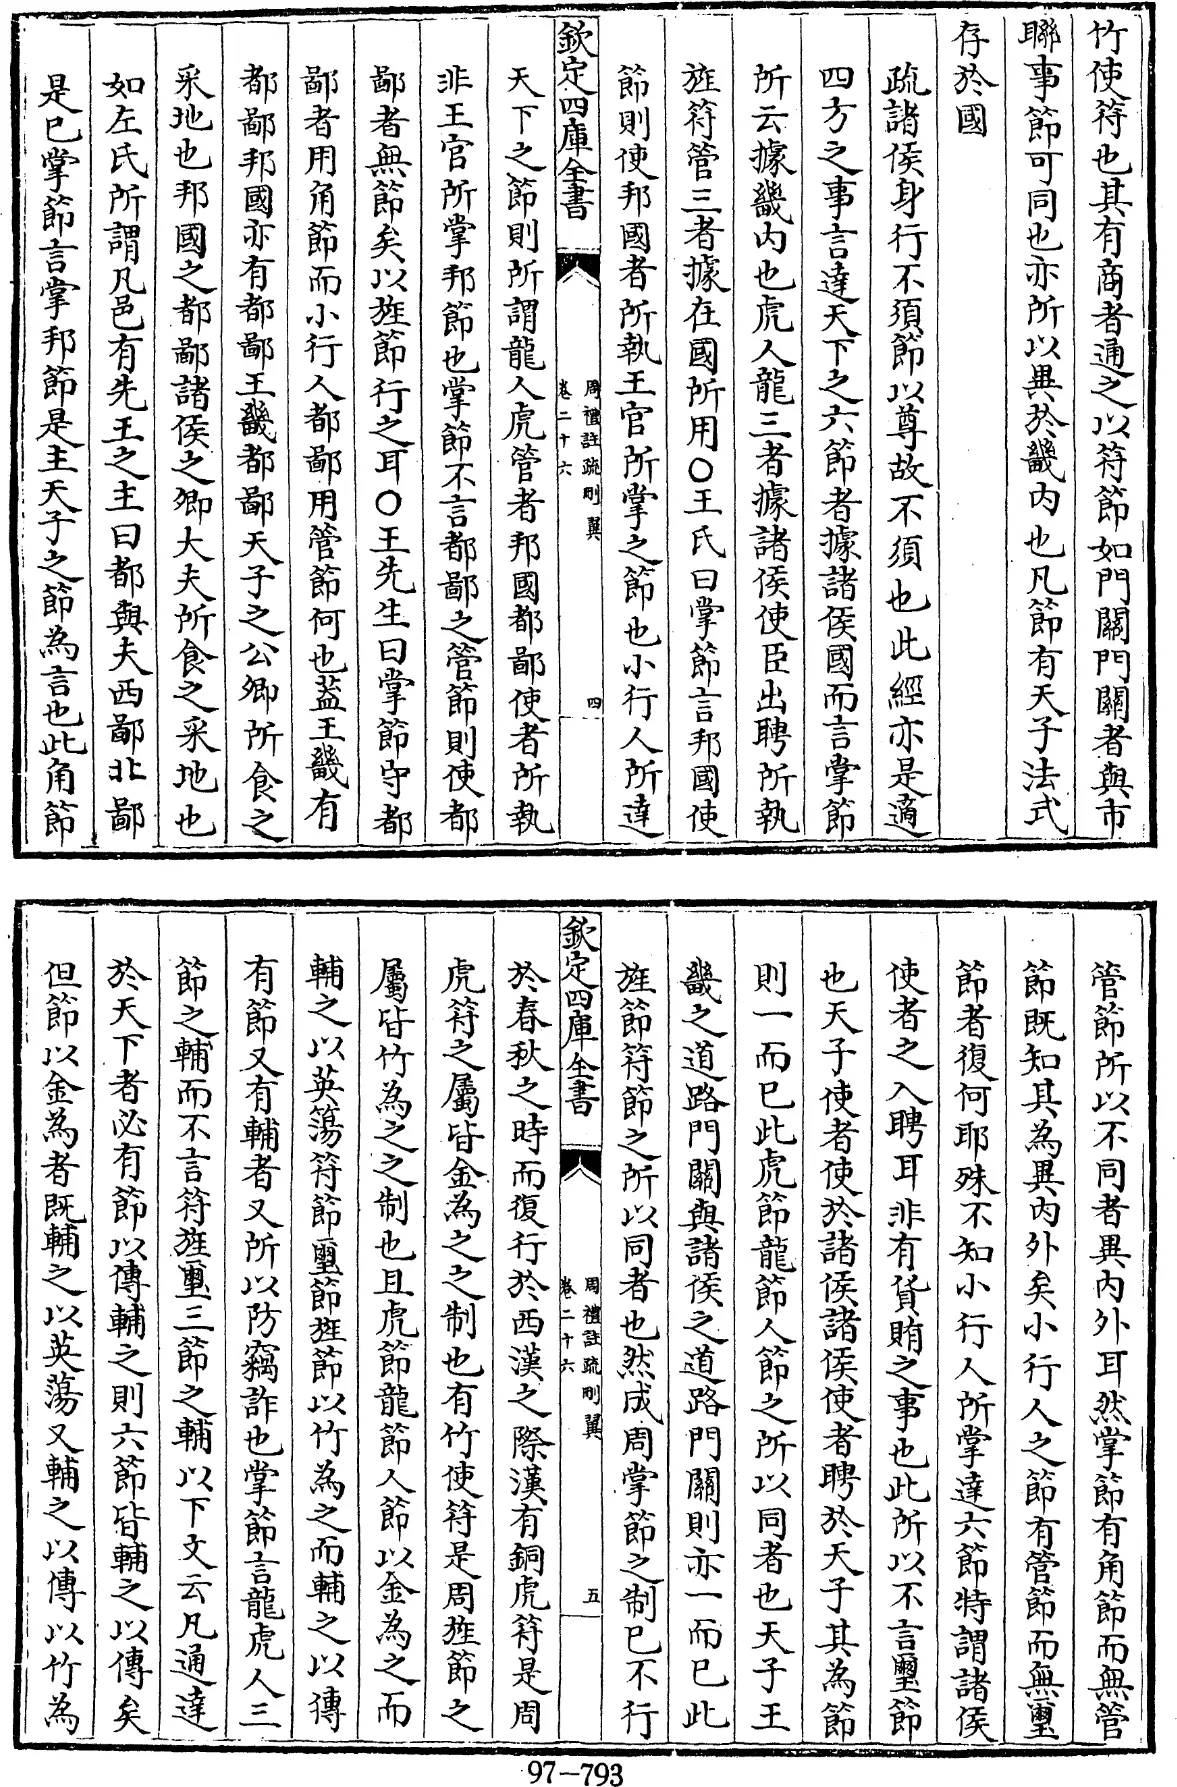 竹使符也其有商者通之以符節如門關門關者與市
聯事節可同也亦所以異於畿内也凡節有天子法式
存於國
疏諸侯身行不須節以尊故不須也此經亦是適
四方之事言達天下之六節者據諸侯國而言掌節
所云據畿内也虎人龍三者據諸侯使臣出聘所執
旌符管三者據在國所用○王氏曰掌節言邦國使
節則使邦國者所執王官所掌之節也小行人所達
欽定四庫全書
周禮註疏刪翼
卷二十六
四
天下之節則所謂龍人虎管者邦國都鄙使者所執
非王官所掌邦節也掌節不言都鄙之管節則使都
鄙者無節矣以旌節行之耳○王先生曰掌節守都
鄙者用角節而小行人都鄙用管節何也葢王畿有
都鄙邦國亦有都鄙王畿都鄙天子之公卿所食之
采地也邦國之都鄙諸侯之卿大夫所食之采地也
如左氏所謂凡邑有先王之主曰都與夫西鄙北鄙
是已掌節言掌邦節是主天子之節為言也此角節
管節所以不同者異内外耳然掌節有角節而無管
節既知其為異内外矣小行人之節有管節而無璽
節者復何耶殊不知小行人所掌達六節特謂諸侯
使者之入聘耳非有貨賄之事也此所以不言璽節
也天子使者使於諸侯諸侯使者聘於天子其為節
則一而已此虎節龍節人節之所以同者也天子王
畿之道路門關與諸侯之道路門關則亦一而已此
旌節符節之所以同者也然成周掌節之制已不行
欽定四庫全書
周禮註疏刪翼
卷二十六
五
於春秋之時而復行於西漢之際漢有銅虎符是周
虎符之屬皆金為之之制也有竹使符是周旌節之
屬皆竹為之之制也且虎節龍節人節以金為之而
輔之以英簜符節璽節旌節以竹為之而輔之以傳
有節又有輔者又所以防竊詐也掌節言龍虎人三
節之輔而不言符旌璽三節之輔以下文云凡通達
於天下者必有節以傳輔之則六節皆輔之以傳矣
但節以金為者既輔之以英蕩又輔之以傳以竹為
97-793